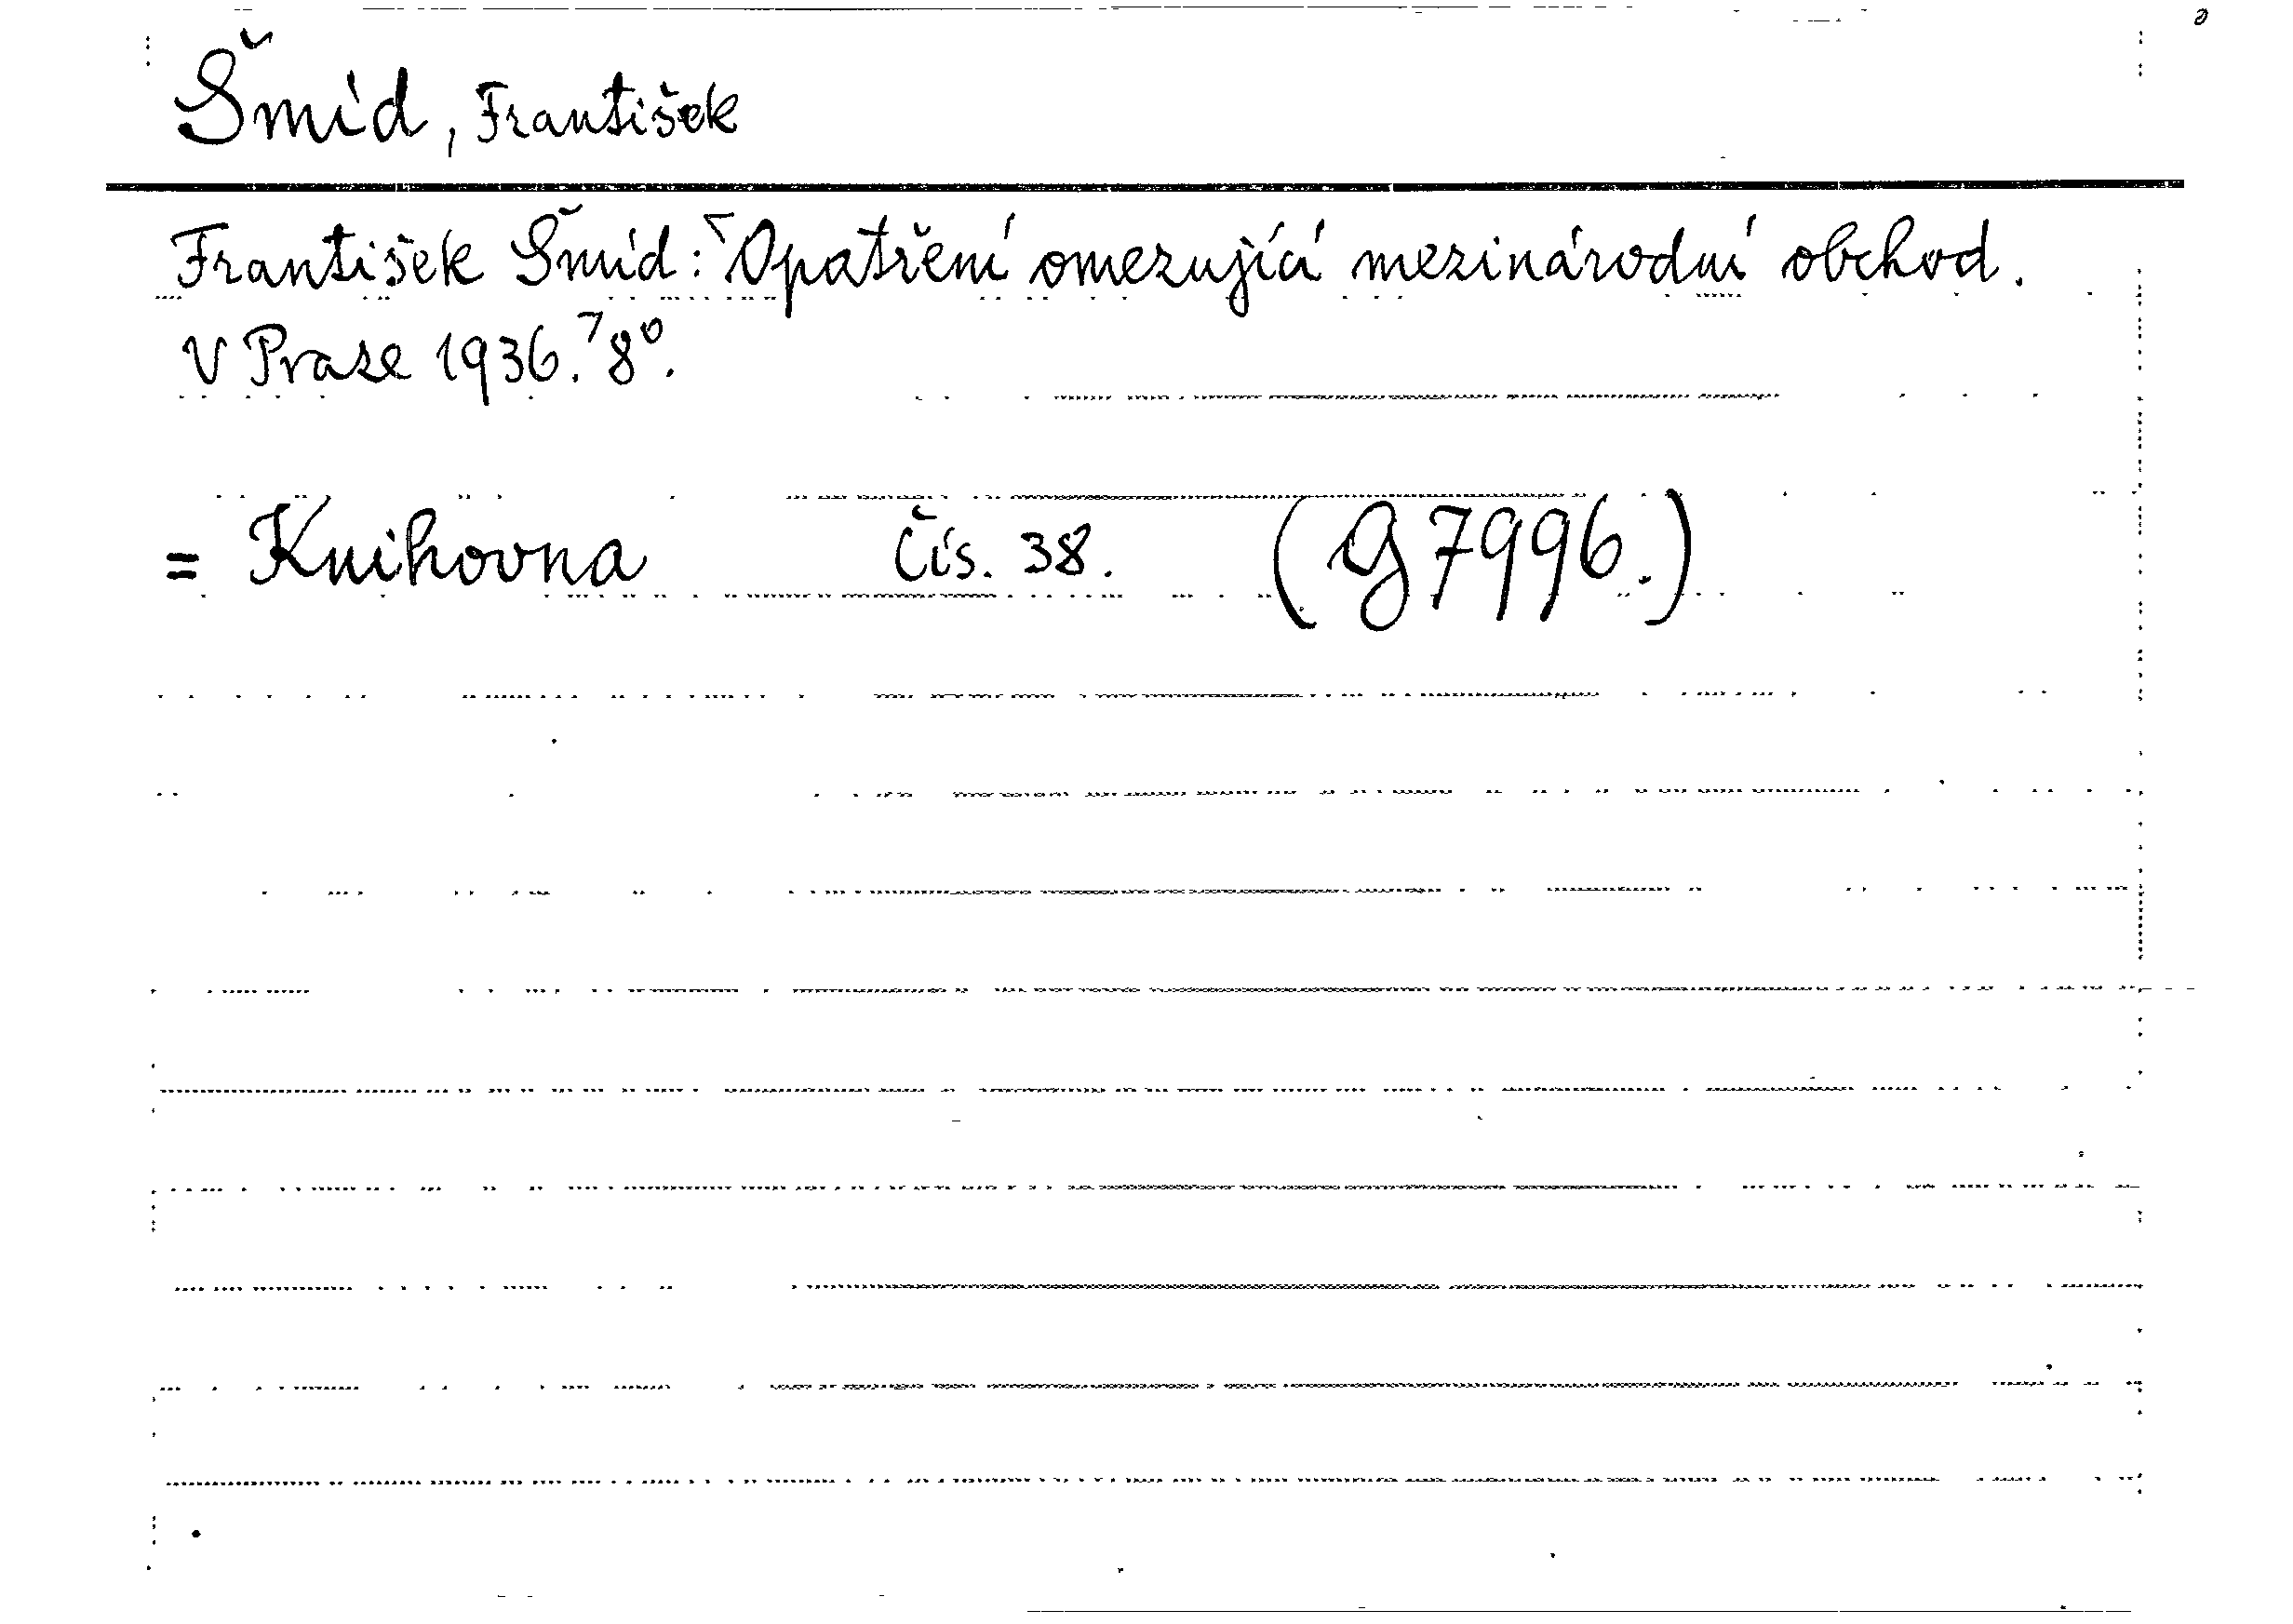 Šmíd, František
František Šmíd: Opatření omezující mezinárodní obchod.
V Praze 1936. 8°.
= Knihovna Čís. 38. (G 7996.)